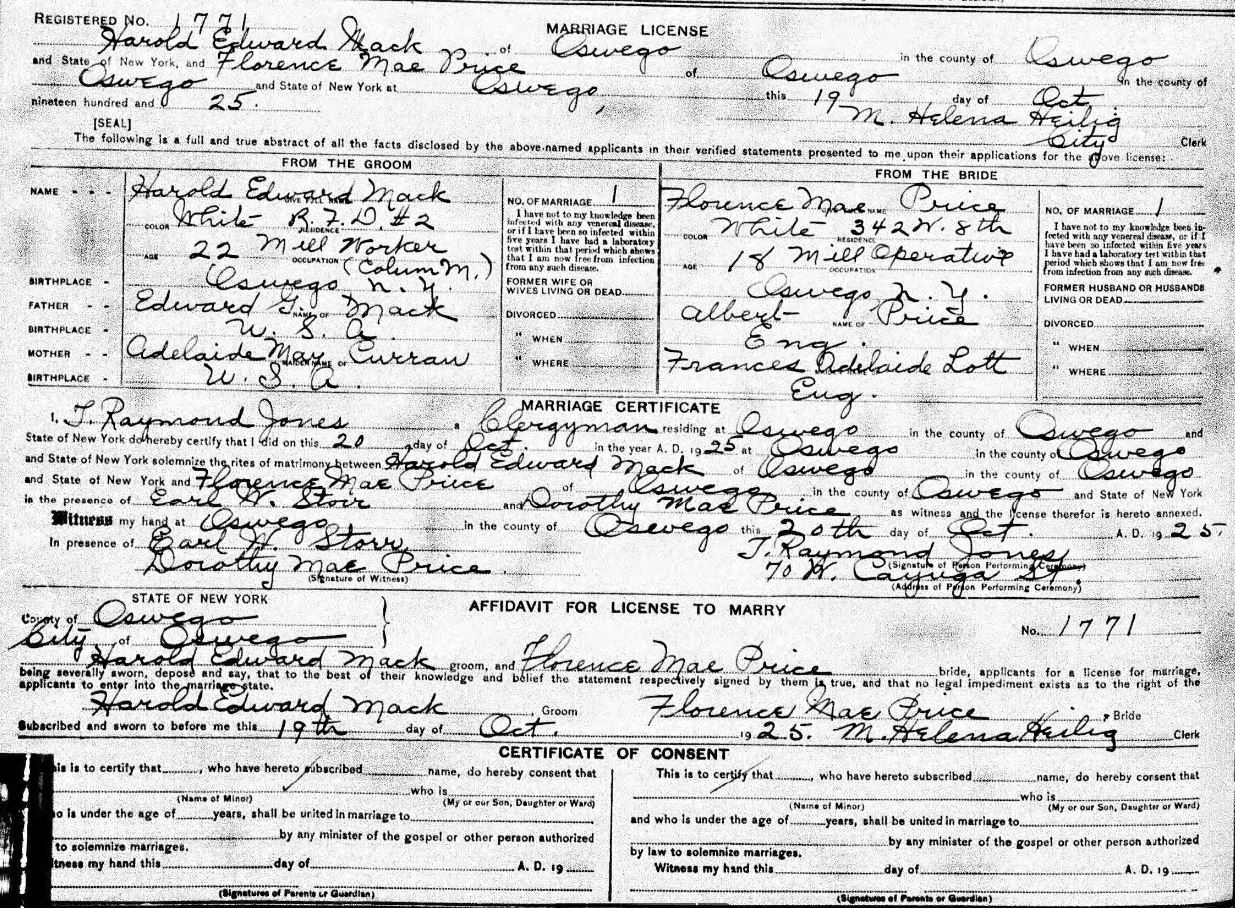 REGISTERED No. 1771
MARRIAGE LICENSE
Harold Edward Mack of Oswego in the county of Oswego
and State of New York, and Florence Mae Price of Oswego in the county of
Oswego and State of New York at Oswego, this 19 day of Oct.
nineteen hundred and 25. M. Helena Heilig
[SEAL] City Clerk
The following is a full and true abstract of all the facts disclosed by the above-named applicants in their verified statements presented to me upon their applications for the above license:
FROM THE GROOM
NAME - - - Harold Edward Mack
GIVE FULL NAME
White R.F.D. #2
COLOR RESIDENCE
22 Mill Worker
AGE OCCUPATION (Colum M.)
BIRTHPLACE - Oswego N.Y.
FATHER - - Edward G. Mack
NAME OF
BIRTHPLACE - U. S. A.
MOTHER - - Adelaide May Curran
MAIDEN NAME OF
BIRTHPLACE - U. S. A.
NO. OF MARRIAGE 1
I have not to my knowledge been
infected with any venereal disease,
or if I have been so infected within
five years I have had a laboratory
test within that period which shows
that I am now free from infection
from any such disease.
FORMER WIFE OR
WIVES LIVING OR DEAD
DIVORCED
" WHEN
" WHERE
FROM THE BRIDE
Florence Mae Price
NAME
White 342 W. 8th
COLOR RESIDENCE
18 Mill Operative
AGE OCCUPATION
Oswego N.Y.
Albert Price
NAME OF
Eng.
Frances Adelaide Lott
Eng.
NO. OF MARRIAGE 1
I have not to my knowledge been in-
fected with any venereal disease, or if I
have been so infected within five years
I have had a laboratory test within that
period which shows that I am now free
from infection from any such disease.
FORMER HUSBAND OR HUSBANDS
LIVING OR DEAD
DIVORCED
" WHEN
" WHERE
MARRIAGE CERTIFICATE
I, T. Raymond Jones a Clergyman residing at Oswego in the county of Oswego and
State of New York do hereby certify that I did on this 20 day of Oct. in the year A. D. 1925 at Oswego in the county of Oswego
and State of New York solemnize the rites of matrimony between Harold Edward Mack of Oswego in the county of Oswego
and State of New York and Florence Mae Price of Oswego in the county of Oswego and State of New York
in the presence of Earl W. Storr and Dorothy Mae Price as witness and the license therefor is hereto annexed.
Witness my hand at Oswego in the county of Oswego this 20th day of Oct. A. D. 1925.
In presence of Earl W. Storr T. Raymond Jones
(Signature of Person Performing Ceremony)
Dorothy Mae Price 70 W. Cayuga St.
(Signature of Witness) (Address of Person Performing Ceremony)
STATE OF NEW YORK
AFFIDAVIT FOR LICENSE TO MARRY
County of Oswego
No. 1771
City of Oswego
Harold Edward Mack groom, and Florence Mae Price bride, applicants for a license for marriage,
being severally sworn, depose and say, that to the best of their knowledge and belief the statement respectively signed by them is true, and that no legal impediment exists as to the right of the
applicants to enter into the marriage state.
Harold Edward Mack Groom Florence Mae Price, Bride
Subscribed and sworn to before me this 19th day of Oct. 1925. M. Helena Heilig Clerk
CERTIFICATE OF CONSENT
is is to certify that , who have hereto subscribed name, do hereby consent that
who is
(Name of Minor) (My or our Son, Daughter or Ward)
o is under the age of years, shall be united in marriage to
by any minister of the gospel or other person authorized
to solemnize marriages.
itness my hand this day of A. D. 19
(Signatures of Parents or Guardian)
This is to certify that , who have hereto subscribed name, do hereby consent that
who is
(Name of Minor) (My or our Son, Daughter or Ward)
and who is under the age of years, shall be united in marriage to
by any minister of the gospel or other person authorized
by law to solemnize marriages.
Witness my hand this day of A. D. 19
(Signatures of Parents or Guardian)